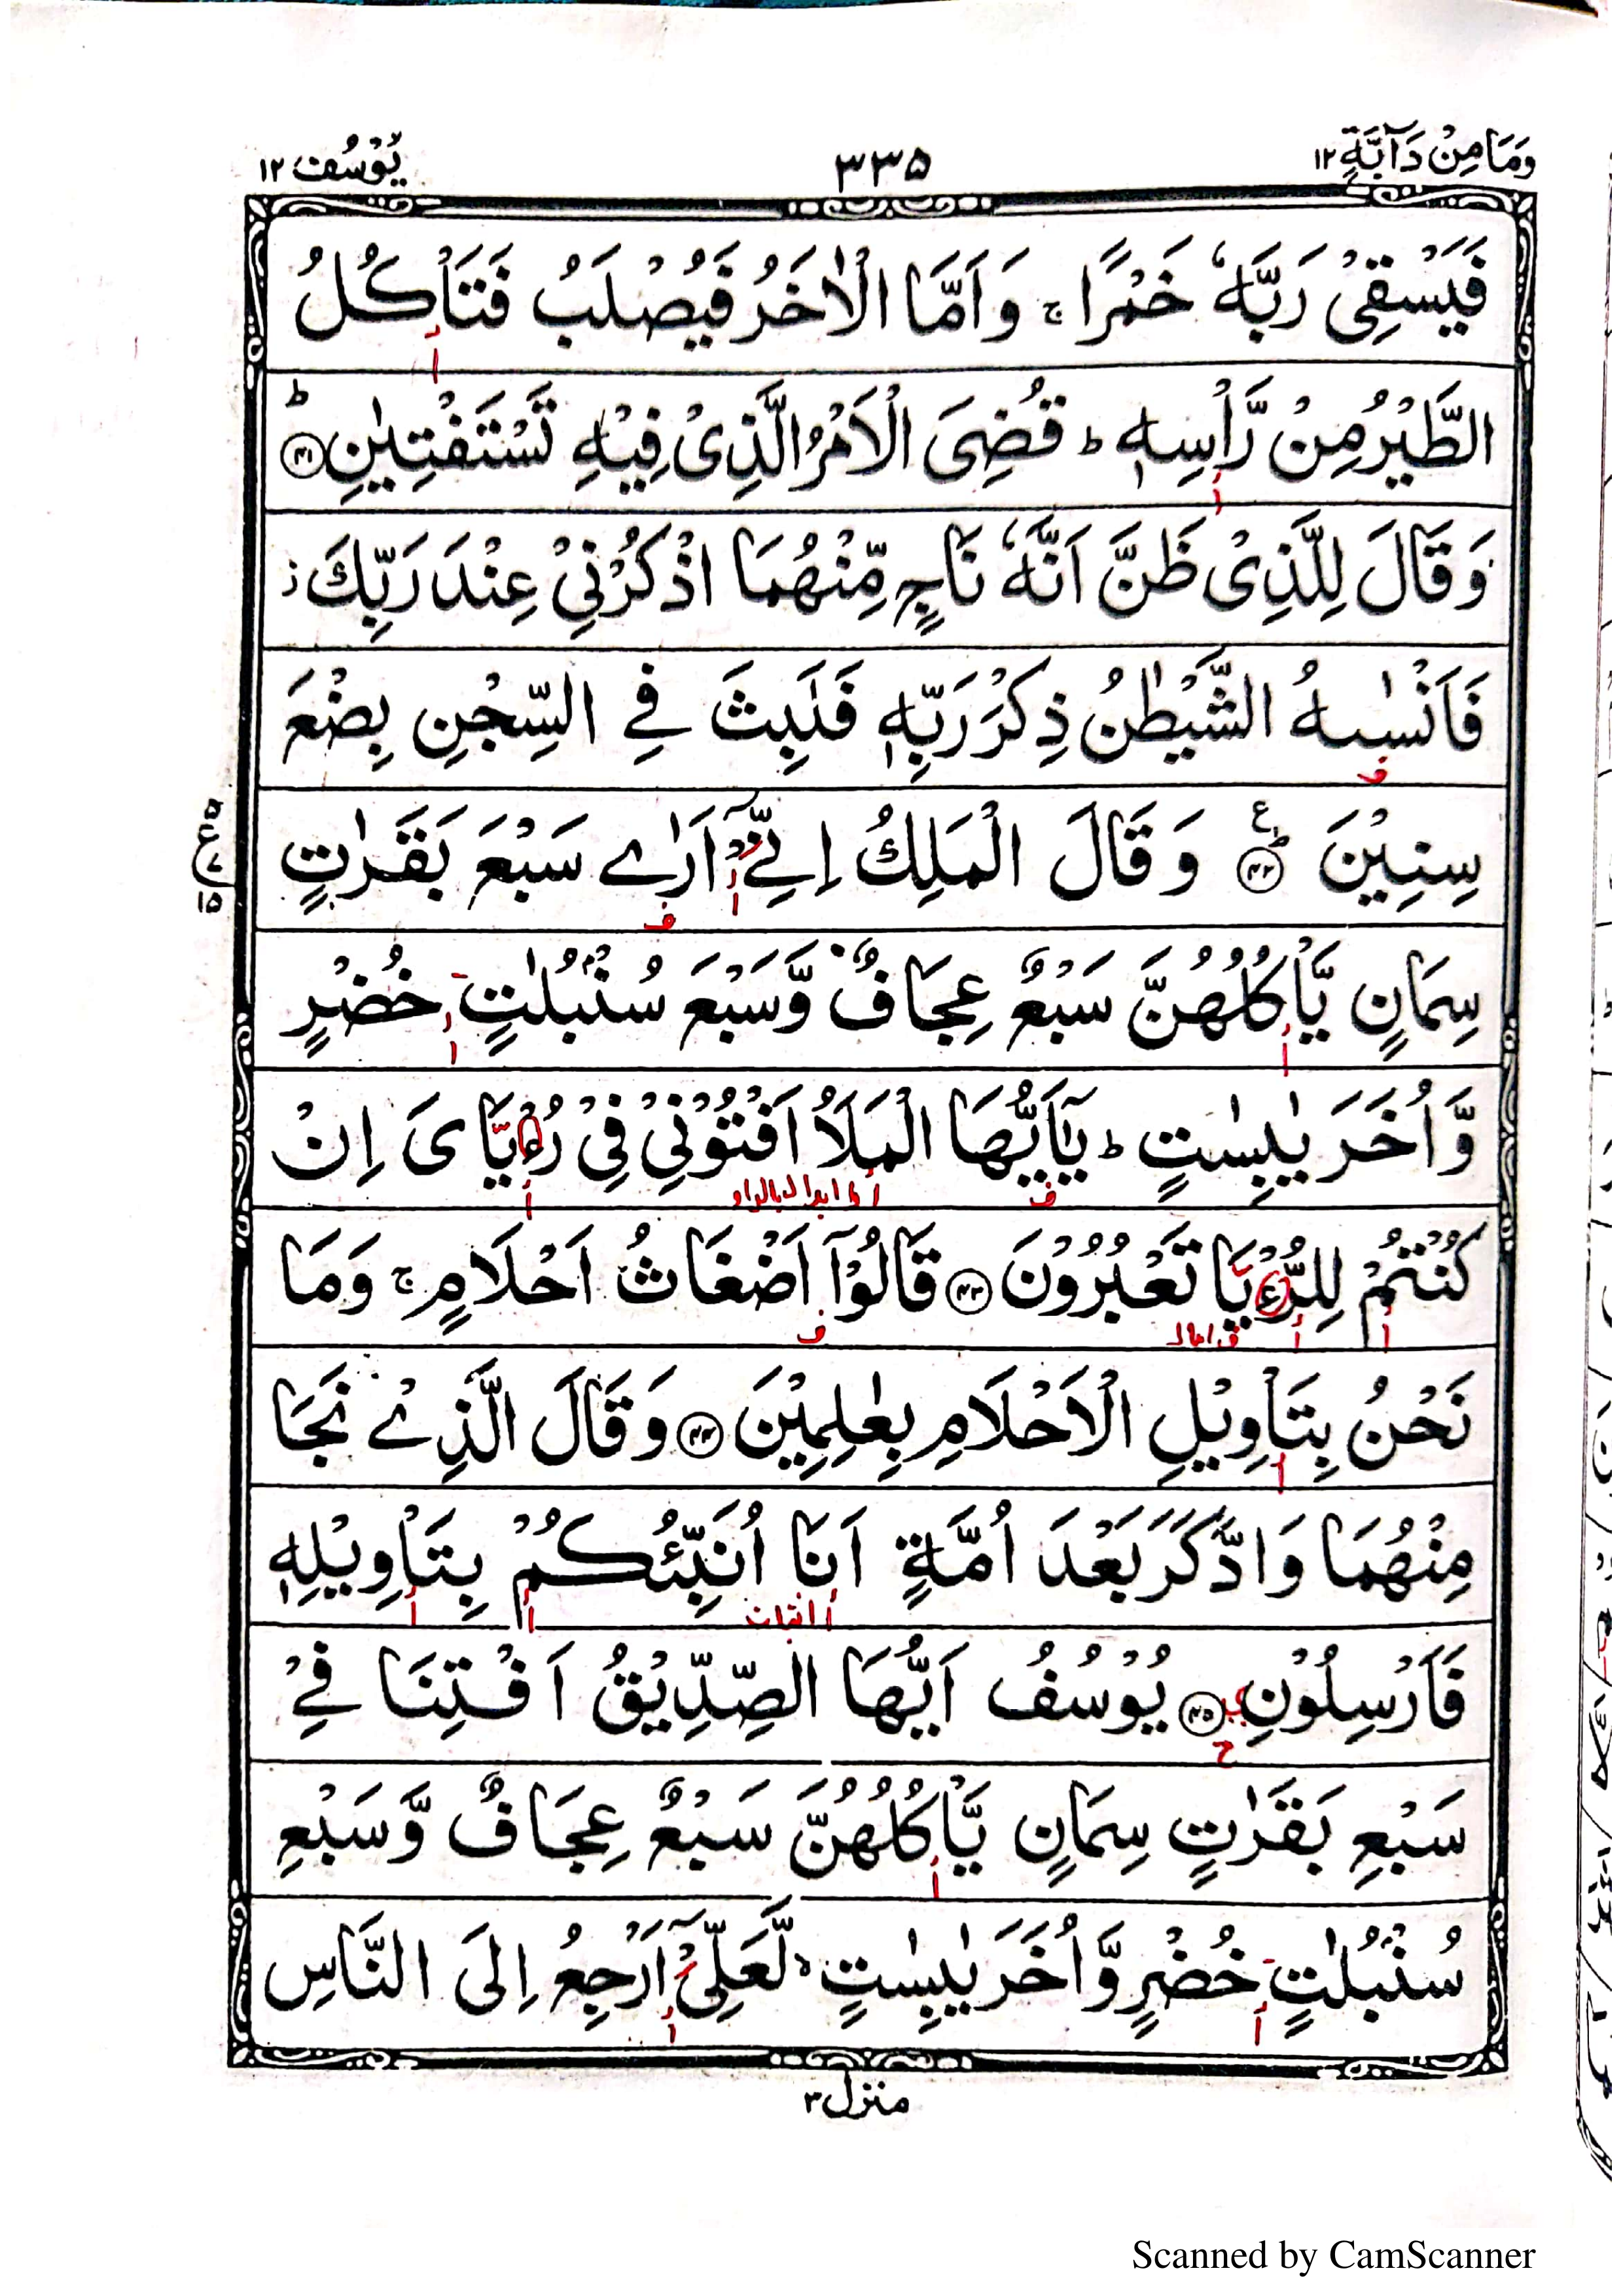 وَمَا مِنْ دَآبَّةٍ ١٢
٣٣٥
يُوْسُف ١٢
فَيَسْقِيْ رَبَّهٗ خَمْرًا ۚ وَاَمَّا الْاٰخَرُ فَيُصْلَبُ فَتَاْكُلُ
الطَّيْرُ مِنْ رَّاْسِهٖ ؕ قُضِيَ الْاَمْرُ الَّذِيْ فِيْهِ تَسْتَفْتِيٰنِ ؕ ﴿٤١﴾
وَقَالَ لِلَّذِيْ ظَنَّ اَنَّهٗ نَاجٍ مِّنْهُمَا اذْكُرْنِيْ عِنْدَ رَبِّكَ ز
فَاَنْسٰىهُ الشَّيْطٰنُ ذِكْرَ رَبِّهٖ فَلَبِثَ فِي السِّجْنِ بِضْعَ
سِنِيْنَ ﴿٤٢﴾ ع وَقَالَ الْمَلِكُ اِنِّيْٓ اَرٰى سَبْعَ بَقَرٰتٍ
سِمَانٍ يَّاْكُلُهُنَّ سَبْعٌ عِجَافٌ وَّسَبْعَ سُنْۢبُلٰتٍ خُضْرٍ
وَّاُخَرَ يٰبِسٰتٍ ؕ يٰۤاَيُّهَا الْمَلَاُ اَفْتُوْنِيْ فِيْ رُءْيَايَ اِنْ
كُنْتُمْ لِلرُّءْيَا تَعْبُرُوْنَ ﴿٤٣﴾ قَالُوْۤا اَضْغَاثُ اَحْلَامٍ ۚ وَمَا
نَحْنُ بِتَاْوِيْلِ الْاَحْلَامِ بِعٰلِمِيْنَ ﴿٤٤﴾ وَقَالَ الَّذِيْ نَجَا
مِنْهُمَا وَادَّكَرَ بَعْدَ اُمَّةٍ اَنَا اُنَبِّئُكُمْ بِتَاْوِيْلِهٖ
فَاَرْسِلُوْنِ ﴿٤٥﴾ يُوْسُفُ اَيُّهَا الصِّدِّيْقُ اَفْتِنَا فِيْ
سَبْعِ بَقَرٰتٍ سِمَانٍ يَّاْكُلُهُنَّ سَبْعٌ عِجَافٌ وَّسَبْعِ
سُنْۢبُلٰتٍ خُضْرٍ وَّاُخَرَ يٰبِسٰتٍ ۙ لَّعَلِّيْۤ اَرْجِعُ اِلَى النَّاسِ
منزل ٣
Scanned by CamScanner